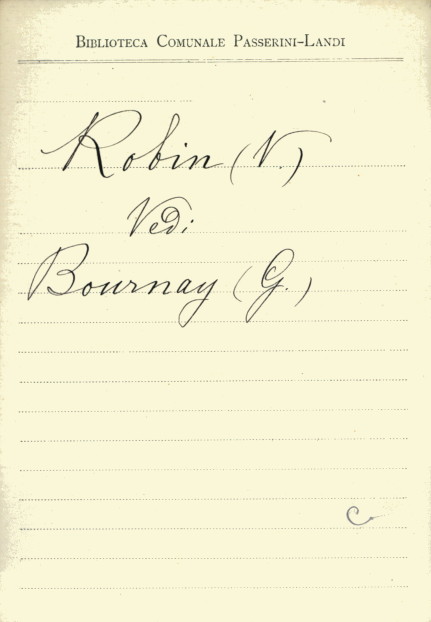 Biblioteca Comunale Passerini-Landi
Robin (V.)
Vedi
Bournay (G.)
C.